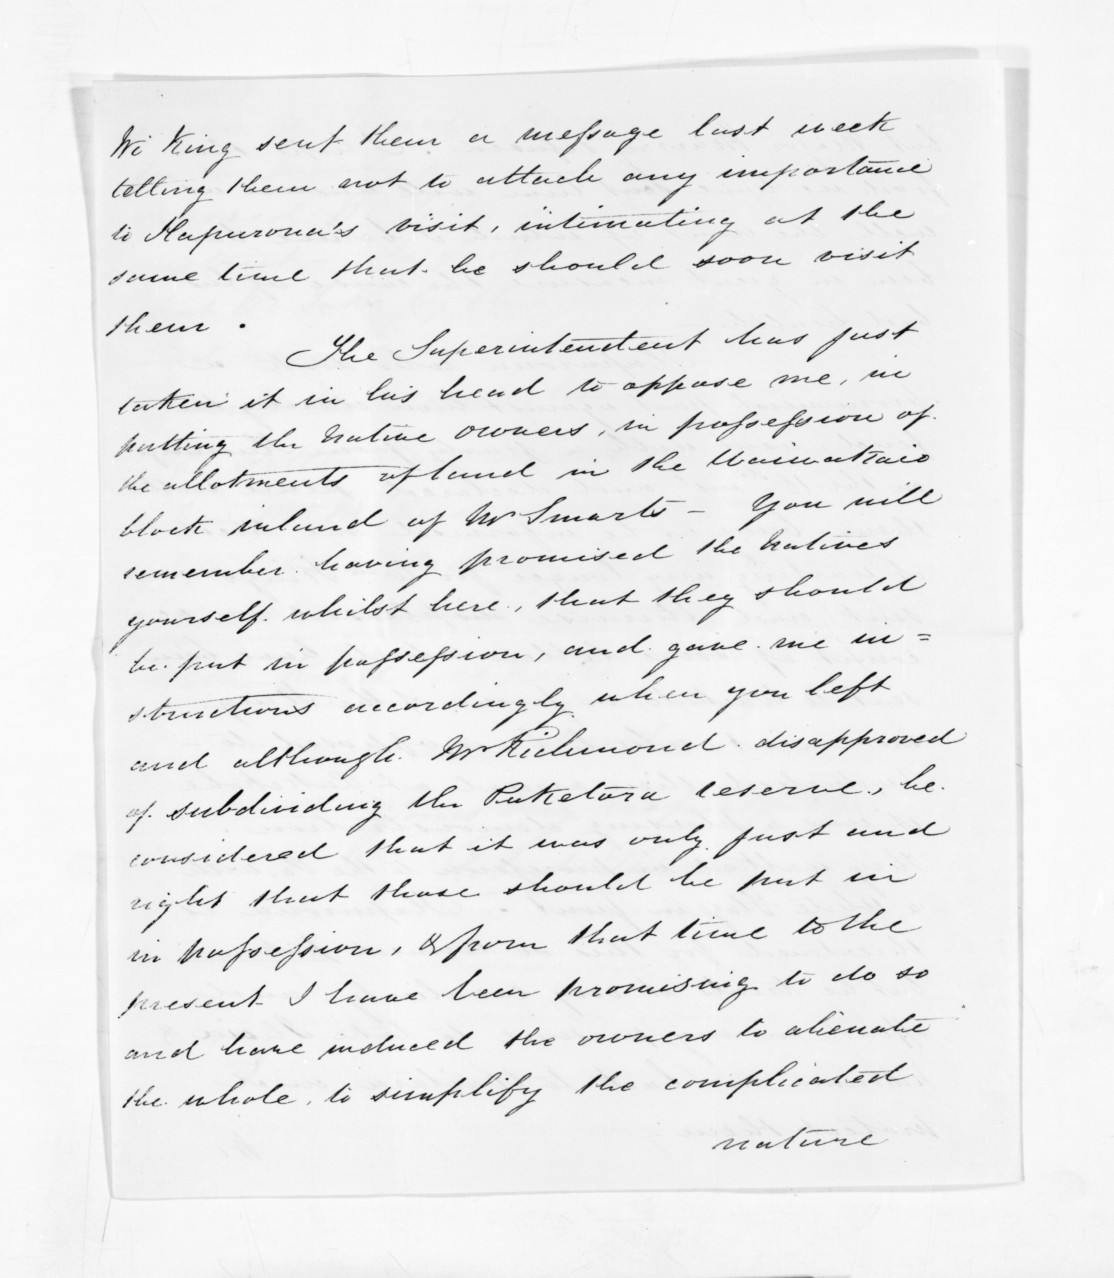 Wi King sent them a message last week
telling them not to attach any importance
to Hapurona's visit, intimating at the
same time that he should soon visit
them.
The Superintendent has just
taken it in his head to oppose me, in
putting the Native owners, in possession of
the allotments of land in the Waiwakaio
block inland of Mr Smarts - You will
remember having promised the Natives
yourself whilst here, that they should
be put in possession, and gave me in=
structions accordingly when you left
and although Mr Richmond disapproved
of subdividing the Puketara reserve, he
considered that it was only just and
right that those should be put in
in possession, & from that time to the
present I have been promising to do so
and have induced the owners to alienate
the whole, to simplify the complicated
nature